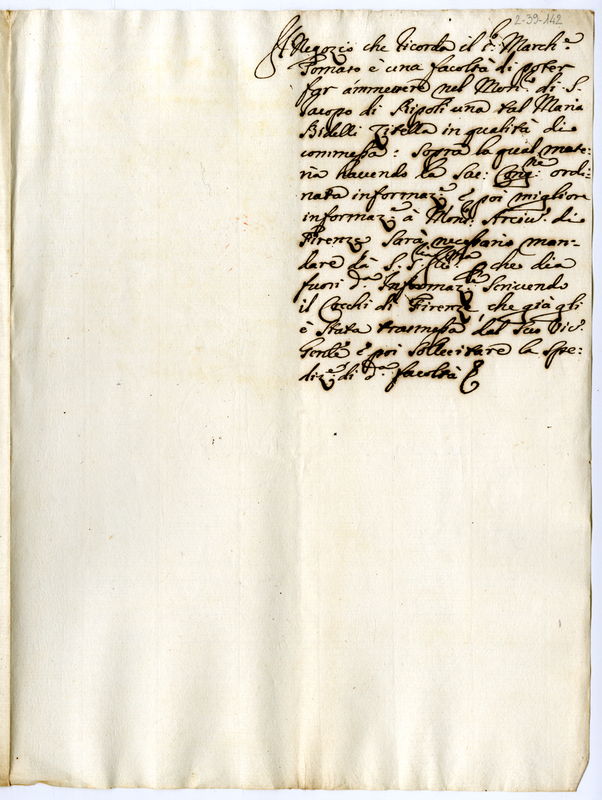 2-39-142
Il Negozio che ricorda il S.r March.e
Tomaso è una facoltà di poter
far ammettere nel Mon.o di S.
Jacopo di Ripoli una tal Maria
Bidelli Zitella in qualità di
commessa: Sopra la qual mate:
ria havendo la Sac: Cong.ne ordi:
nata informaz.e e poi migliore
informaz.e à Mons. Arciv.o di
Firenze sarà necessario man-
dare dà S. S. Ill.ma che dia
fuori d.a Informaz.e Scrivendo
il Cocchi di Firenze, che già gli
è stata trasmessa dal suo Vic.o
Gen.le e poi sollecitare la spe:
diz.e di d.a facoltà